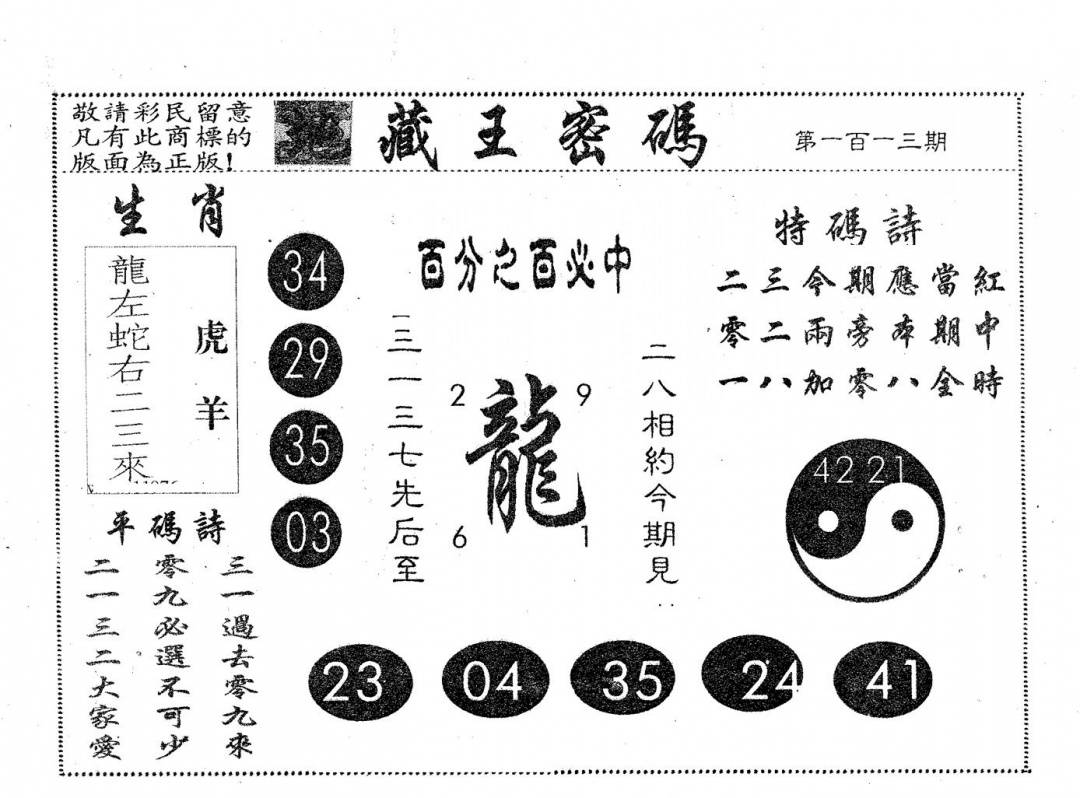 敬請彩民留意
凡有此商標的
版面為正版!
地藏王密碼
第一百一十三期
生肖
龍左蛇右二三來
虎羊
34
29
35
03
百分之百必中
三一三七先后至
2
9
龍
6
1
二八相約今期見
特碼詩
二三今期應當紅
零二兩旁本期中
一八加零八全時
42 21
平碼詩
三一過去零九來
零九必選不可少
二一三二大家愛
23
04
35
24
41